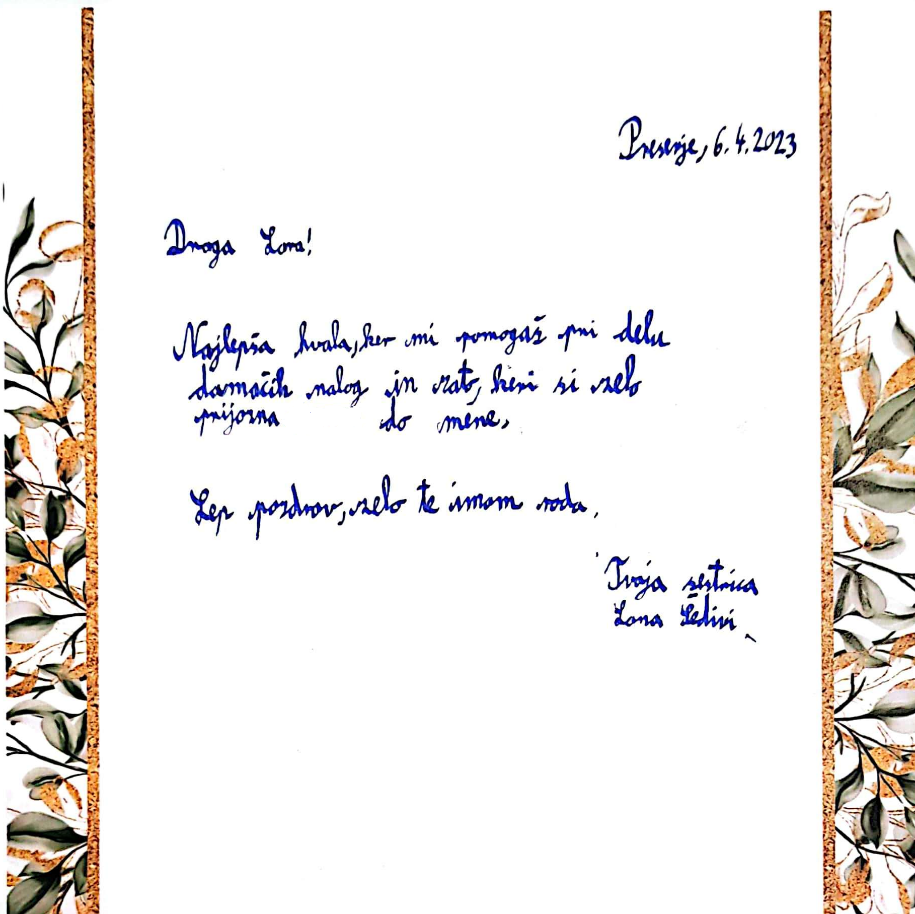 Preserje, 6.4.2023
Draga Lara!
Najlepša hvala, ker mi pomagaš pri delu
domačih nalog in zato, keri si zelo
prijazna do mene.
Lep pozdrav, zelo te imam rada.
Tvoja sestrica
Lana